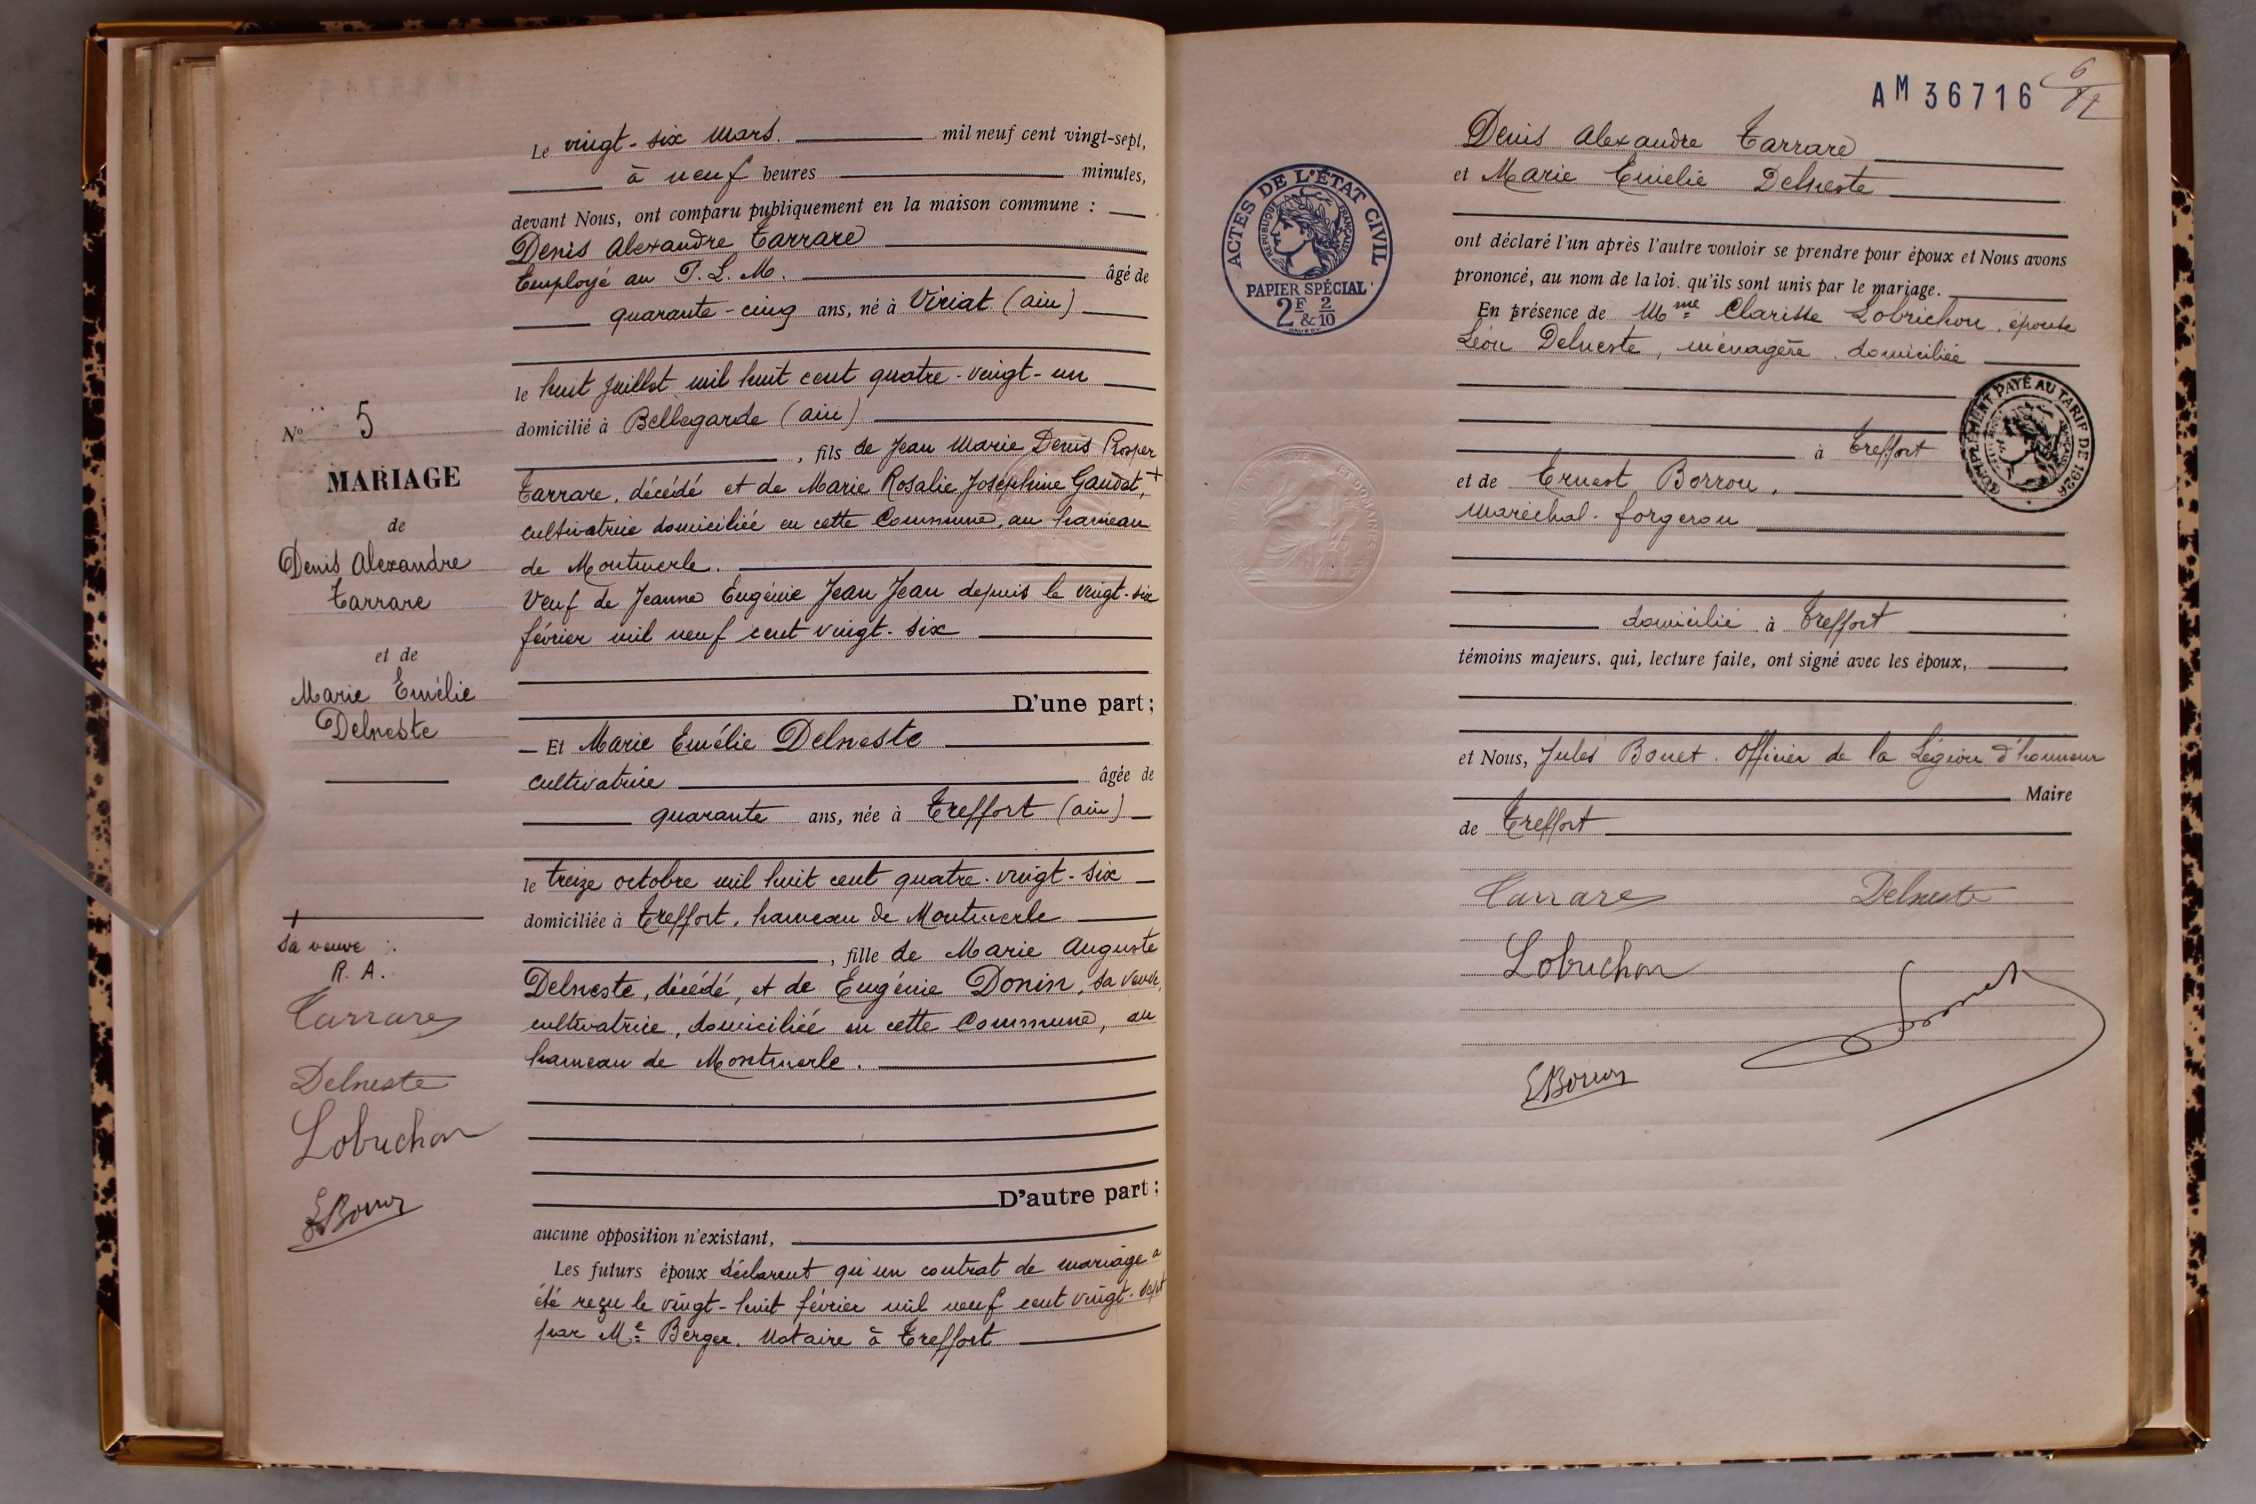 Le vingt-six mars. mil neuf cent vingt-sept,
à neuf heures minutes,
devant Nous, ont comparu publiquement en la maison commune :
Denis Alexandre Tarrare
Employé au P. L. M. âgé de
quarante-cinq ans, né à Viriat (ain)
le huit Juillet mil huit cent quatre-vingt-un
domicilié à Bellegarde (ain)
, fils de Jean Marie Denis Prosper
Tarrare, décédé et de Marie Rosalie Joséphine Gaudet, +
cultivatrice domiciliée en cette Commune, au hameau
de Montmerle.
Veuf de Jeanne Eugénie Jean Jean depuis le vingt-six
février mil neuf cent vingt-six
D'une part ;
Et Marie Emélie Delneste
cultivatrice âgée de
quarante ans, née à Treffort (ain)
le treize octobre mil huit cent quatre-vingt-six
domiciliée à Treffort, hameau de Montmerle
, fille de Marie Auguste
Delneste, décédé, et de Eugénie Donin, sa veuve,
cultivatrice, domiciliée en cette Commune, au
hameau de Montmerle.
D'autre part ;
aucune opposition n'existant,
Les futurs époux déclarent qu'un contrat de mariage a
été reçu le vingt-huit février mil neuf cent vingt-sept
par Me Berger, Notaire à Treffort
No 5
MARIAGE
de
Denis Alexandre
Tarrare
et de
Marie Emélie
Delneste
+
sa veuve :
R. A.
Tarrare
Delneste
Lobrichon
E Borron
AM 36716
6
Denis Alexandre Tarrare
et Marie Emélie Delneste
ont déclaré l'un après l'autre vouloir se prendre pour époux et Nous avons
prononcé, au nom de la loi, qu'ils sont unis par le mariage.
En présence de Mme Clarisse Lobrichon, épouse
Léon Delneste, ménagère, domiciliée
à Treffort
et de Ernest Borron,
maréchal-forgeron
domicilié à Treffort
témoins majeurs, qui, lecture faite, ont signé avec les époux,
et Nous, Jules Bonet. Officier de la Légion d'honneur
Maire
de Treffort
Tarrare Delneste
Lobrichon
Bonet
E Borron
ACTES DE L'ÉTAT CIVIL
RÉPUBLIQUE FRANÇAISE
PAPIER SPÉCIAL
2F & 2/10
COMPLÉMENT PAYÉ AU TARIF DE 1926